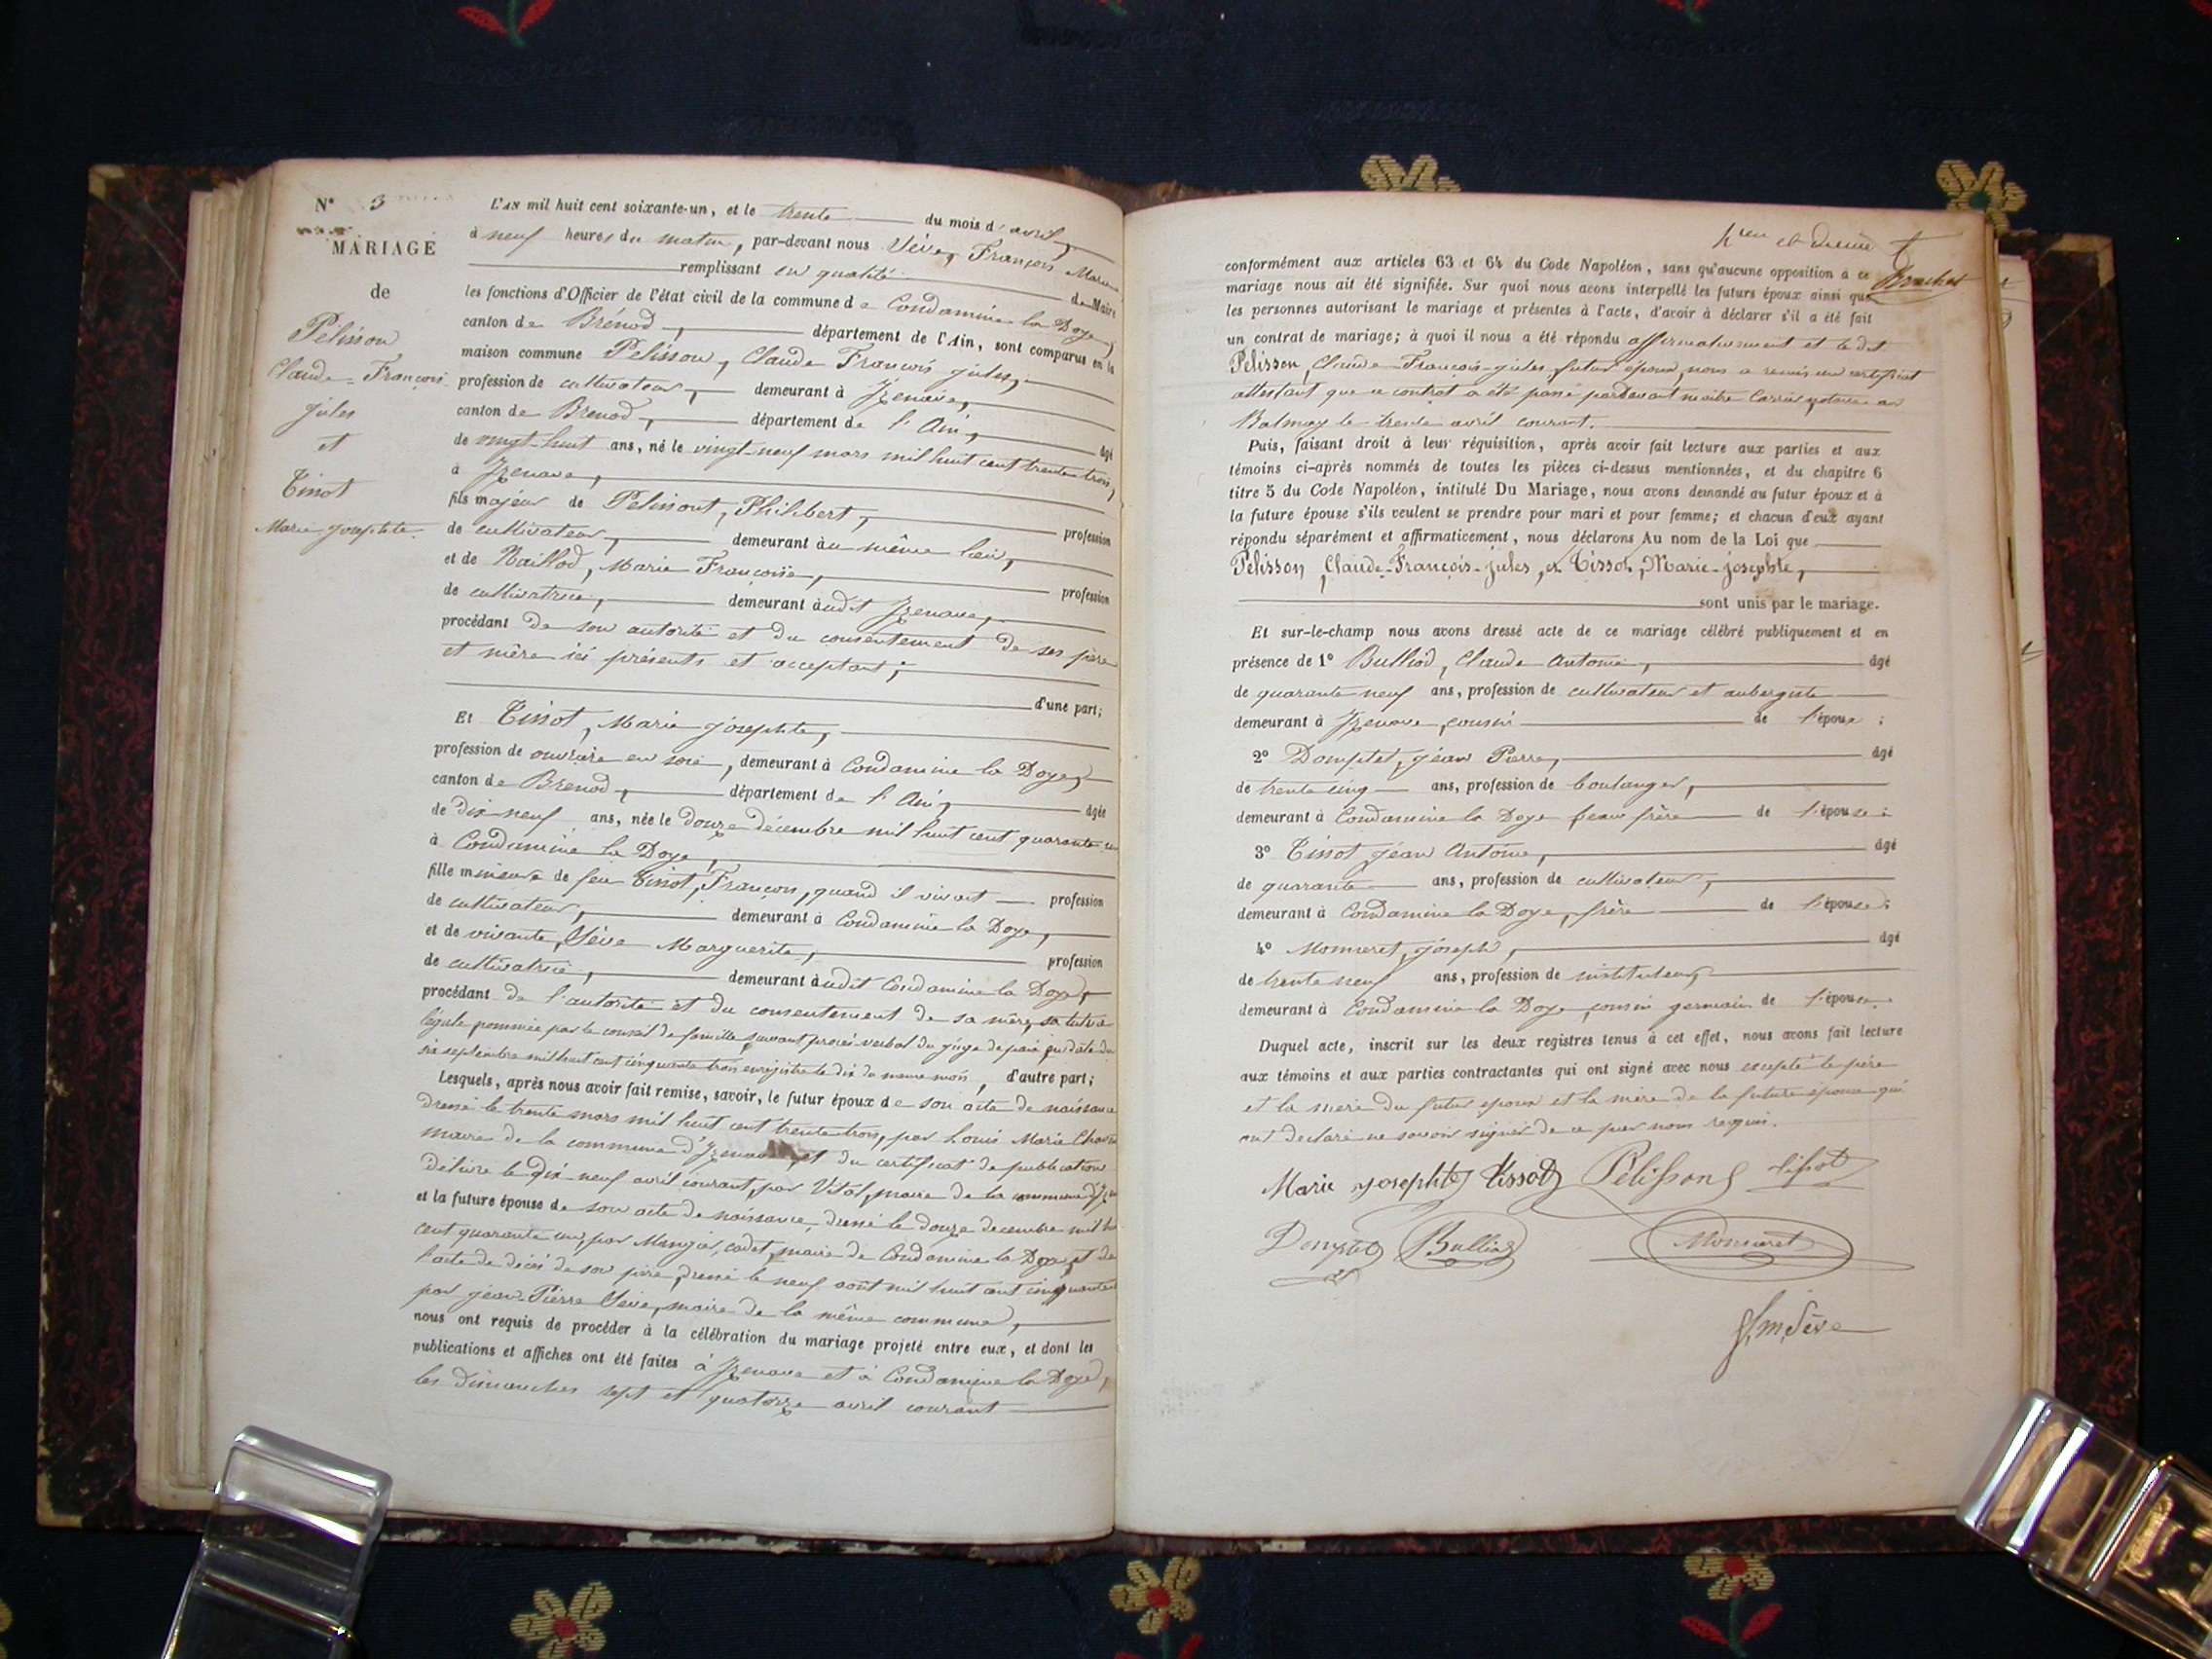 N° 3
MARIAGE
de
Pélisson
Claude-François
jules
et
Tissot
Marie josephte.
L'AN mil huit cent soixante-un, et le trente du mois d'avril,
à neuf heures du matin, par-devant nous Sève, François Marie
remplissant en qualité de Maire
les fonctions d'Officier de l'état civil de la commune de Condamine la Doye,
canton de Brénod, département de l'Ain, sont comparus en la
maison commune Pelisson, Claude François jules,
profession de cultivateur, demeurant à Izenave,
canton de Brenod, département de l'Ain, âgé
de vingt-huit ans, né le vingt-neuf mars mil huit cent trente trois,
à Izenave,
fils majeur de Pelissont, Philibert, profession
de cultivateur, demeurant au même lieu,
et de Maillod, Marie Françoise, profession
de cultivatrice, demeurant audit Izenave,
procédant de son autorité et du consentement de ses père
et mère ici présents et acceptant;
d'une part;
Et Tissot, Marie josephte,
profession de ouvrière en soie, demeurant à Condamine la Doye,
canton de Brenod, département de l'Ain, âgée
de dix-neuf ans, née le douze décembre mil huit cent quarante un
à Condamine la Doye,
fille mineure de feu Tissot, François, quand il vivait profession
de cultivateur, demeurant à Condamine la Doye,
et de vivante, Sève Marguerite, profession
de cultivatrice, demeurant audit Condamine la Doye,
procédant de l'autorité et du consentement de sa mère, sa tutrice
légale nommée par le conseil de famille suivant procès-verbal du juge de paix en date du
six septembre mil huit cent cinquante trois enregistré le dix du même mois, d'autre part;
Lesquels, après nous avoir fait remise, savoir, le futur époux de son acte de naissance
dressé le trente mars mil huit cent trente trois, par Louis Marie
maire de la commune d'Izenave, et du certificat de publication
délivré le dix-neuf avril courant, par Vital, maire de la commune
et la future épouse de son acte de naissance, dressé le douze décembre mil huit
cent quarante un, par cadet, maire de Condamine la Doye, et de
l'acte de décès de son père, dressé le neuf août mil huit cent cinquante
par jean-Pierre Sève, maire de la même commune,
nous ont requis de procéder à la célébration du mariage projeté entre eux, et dont les
publications et affiches ont été faites à Izenave et à Condamine la Doye,
les dimanches sept et quatorze avril courant
conformément aux articles 63 et 64 du Code Napoléon, sans qu'aucune opposition à ce
mariage nous ait été signifiée. Sur quoi nous avons interpellé les futurs époux ainsi que
les personnes autorisant le mariage et présentes à l'acte, d'avoir à déclarer s'il a été fait
un contrat de mariage; à quoi il nous a été répondu affirmativement et le dit
Pelisson, Claude-François-jules, futur époux, nous a remis un certificat
attestant que ce contrat a été passé pardevant maître notaire au
Balmay le trente avril courant.
Puis, faisant droit à leur réquisition, après avoir fait lecture aux parties et aux
témoins ci-après nommés de toutes les pièces ci-dessus mentionnées, et du chapitre 6
titre 5 du Code Napoléon, intitulé Du Mariage, nous avons demandé au futur époux et à
la future épouse s'ils veulent se prendre pour mari et pour femme; et chacun d'eux ayant
répondu séparément et affirmativement, nous déclarons Au nom de la Loi que
Pelisson, Claude-François-jules, et Tissot, Marie-josephte,
sont unis par le mariage.
Et sur-le-champ nous avons dressé acte de ce mariage célébré publiquement et en
présence de 1° Bulliod, Claude Antoine, âgé
de quarante neuf ans, profession de cultivateur et aubergiste
demeurant à Izenave, cousin de l'époux;
2° Domptet, jéan Pierre, âgé
de trente cinq ans, profession de boulanger,
demeurant à Condamine la Doye beau frère de l'épouse;
3° Tissot jéan Antoine, âgé
de quarante ans, profession de cultivateur,
demeurant à Condamine la Doye, frère de l'épouse;
4° Monneret, joseph, âgé
de trente neuf ans, profession de instituteur,
demeurant à Condamine la Doye, cousin germain de l'épouse.
Duquel acte, inscrit sur les deux registres tenus à cet effet, nous avons fait lecture
aux témoins et aux parties contractantes qui ont signé avec nous excepté le père
et la mère du futur époux et la mère de la future épouse qui
ont déclaré ne savoir signer de ce par nous requis.
Marie josephte tissot Pélisson tissot
Domptet Bulliod Monneret
f. m. Sève